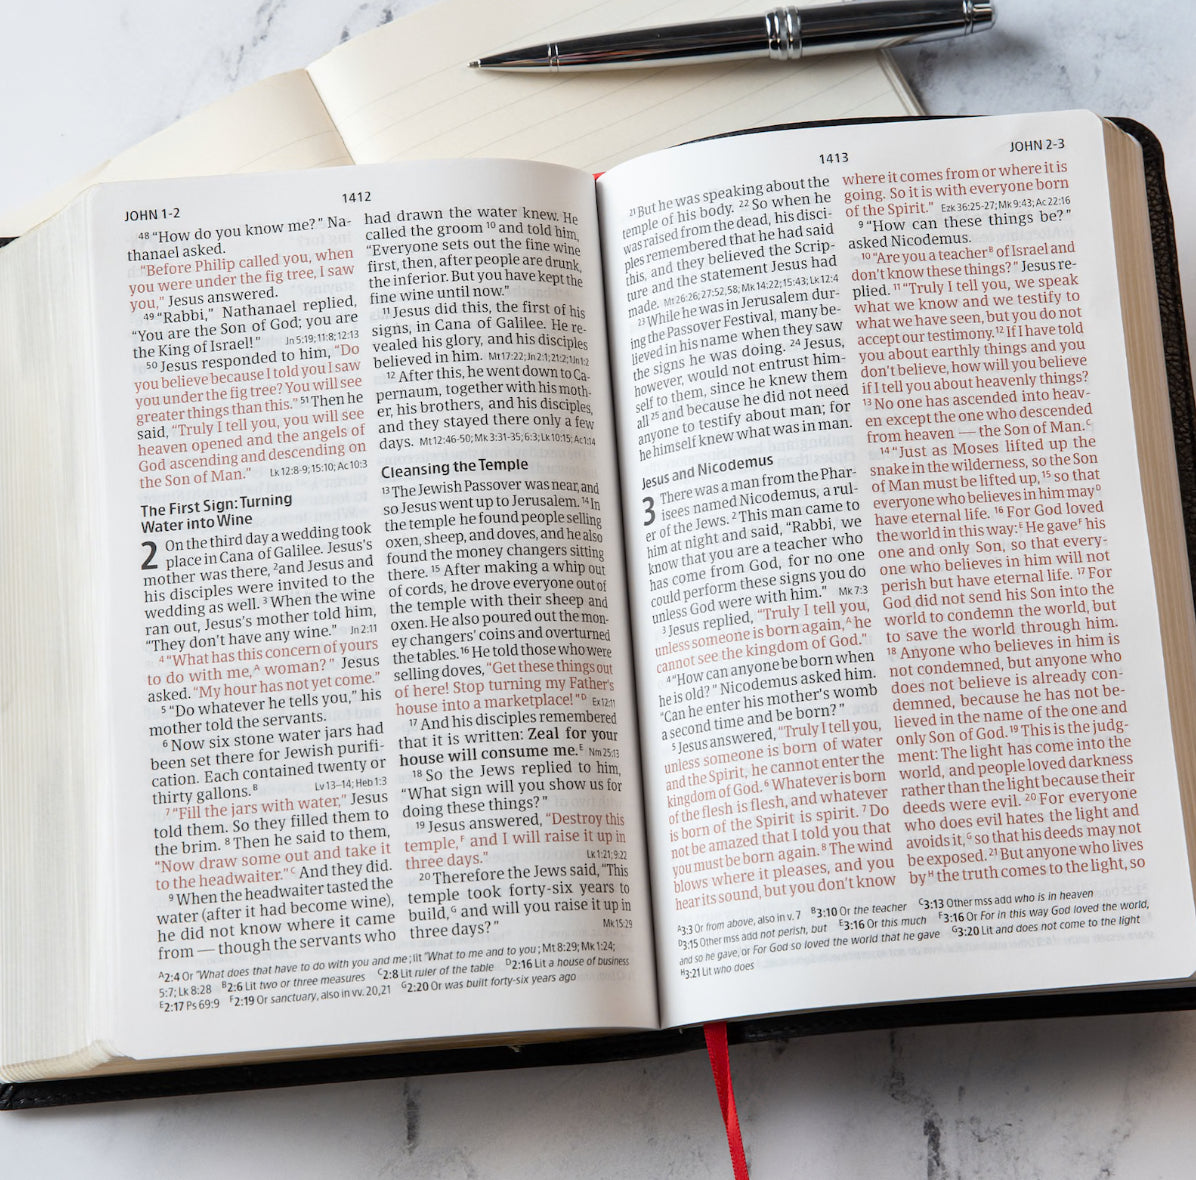 JOHN 1-2
1412
48 “How do you know me?” Na-
thanael asked.
“Before Philip called you, when
you were under the fig tree, I saw
you,” Jesus answered.
49 “Rabbi,” Nathanael replied,
“You are the Son of God; you are
the King of Israel!” Jn 5:19; 11:8; 12:13
50 Jesus responded to him, “Do
you believe because I told you I saw
you under the fig tree? You will see
greater things than this.” 51 Then he
said, “Truly I tell you, you will see
heaven opened and the angels of
God ascending and descending on
the Son of Man.” Lk 12:8-9; 15:10; Ac 10:3
The First Sign: Turning
Water into Wine
2 On the third day a wedding took
place in Cana of Galilee. Jesus’s
mother was there, 2 and Jesus and
his disciples were invited to the
wedding as well. 3 When the wine
ran out, Jesus’s mother told him,
“They don’t have any wine.” Jn 2:11
4 “What has this concern of yours
to do with me,A woman?” Jesus
asked. “My hour has not yet come.”
5 “Do whatever he tells you,” his
mother told the servants.
6 Now six stone water jars had
been set there for Jewish purifi-
cation. Each contained twenty or
thirty gallons.B Lv 13–14; Heb 1:3
7 “Fill the jars with water,” Jesus
told them. So they filled them to
the brim. 8 Then he said to them,
“Now draw some out and take it
to the headwaiter.”C And they did.
9 When the headwaiter tasted the
water (after it had become wine),
he did not know where it came
from — though the servants who
had drawn the water knew. He
called the groom 10 and told him,
“Everyone sets out the fine wine
first, then, after people are drunk,
the inferior. But you have kept the
fine wine until now.”
11 Jesus did this, the first of his
signs, in Cana of Galilee. He re-
vealed his glory, and his disciples
believed in him. Mt 17:22; Jn 2:1; 21:2; 1Jn 1:2
12 After this, he went down to Ca-
pernaum, together with his moth-
er, his brothers, and his disciples,
and they stayed there only a few
days. Mt 12:46-50; Mk 3:31-35; 6:3; Lk 10:15; Ac 1:14
Cleansing the Temple
13 The Jewish Passover was near, and
so Jesus went up to Jerusalem. 14 In
the temple he found people selling
oxen, sheep, and doves, and he also
found the money changers sitting
there. 15 After making a whip out
of cords, he drove everyone out of
the temple with their sheep and
oxen. He also poured out the mon-
ey changers’ coins and overturned
the tables. 16 He told those who were
selling doves, “Get these things out
of here! Stop turning my Father’s
house into a marketplace!”D Ex 12:11
17 And his disciples remembered
that it is written: Zeal for your
house will consume me.E Nm 25:13
18 So the Jews replied to him,
“What sign will you show us for
doing these things?”
19 Jesus answered, “Destroy this
temple,F and I will raise it up in
three days.” Lk 1:21; 9:22
20 Therefore the Jews said, “This
temple took forty-six years to
build,G and will you raise it up in
three days?” Mk 15:29
A2:4 Or “What does that have to do with you and me; lit “What to me and to you; Mt 8:29; Mk 1:24;
5:7; Lk 8:28 B2:6 Lit two or three measures C2:8 Lit ruler of the table D2:16 Lit a house of business
E2:17 Ps 69:9 F2:19 Or sanctuary, also in vv. 20,21 G2:20 Or was built forty-six years ago
1413
JOHN 2-3
21 But he was speaking about the
temple of his body. 22 So when he
was raised from the dead, his disci-
ples remembered that he had said
this, and they believed the Scrip-
ture and the statement Jesus had
made. Mt 26:26; 27:52,58; Mk 14:22; 15:43; Lk 12:4
23 While he was in Jerusalem dur-
ing the Passover Festival, many be-
lieved in his name when they saw
the signs he was doing. 24 Jesus,
however, would not entrust him-
self to them, since he knew them
all 25 and because he did not need
anyone to testify about man; for
he himself knew what was in man.
Jesus and Nicodemus
3 There was a man from the Phar-
isees named Nicodemus, a rul-
er of the Jews. 2 This man came to
him at night and said, “Rabbi, we
know that you are a teacher who
has come from God, for no one
could perform these signs you do
unless God were with him.” Mk 7:3
3 Jesus replied, “Truly I tell you,
unless someone is born again,A he
cannot see the kingdom of God.”
4 “How can anyone be born when
he is old?” Nicodemus asked him.
“Can he enter his mother’s womb
a second time and be born?”
5 Jesus answered, “Truly I tell you,
unless someone is born of water
and the Spirit, he cannot enter the
kingdom of God. 6 Whatever is born
of the flesh is flesh, and whatever
is born of the Spirit is spirit. 7 Do
not be amazed that I told you that
you must be born again. 8 The wind
blows where it pleases, and you
hear its sound, but you don’t know
where it comes from or where it is
going. So it is with everyone born
of the Spirit.” Ezk 36:25-27; Mk 9:43; Ac 22:16
9 “How can these things be?”
asked Nicodemus.
10 “Are you a teacherB of Israel and
don’t know these things?” Jesus re-
plied. 11 “Truly I tell you, we speak
what we know and we testify to
what we have seen, but you do not
accept our testimony. 12 If I have told
you about earthly things and you
don’t believe, how will you believe
if I tell you about heavenly things?
13 No one has ascended into heav-
en except the one who descended
from heaven — the Son of Man.C
14 “Just as Moses lifted up the
snake in the wilderness, so the Son
of Man must be lifted up, 15 so that
everyone who believes in him mayD
have eternal life. 16 For God loved
the world in this way:E He gaveF his
one and only Son, so that every-
one who believes in him will not
perish but have eternal life. 17 For
God did not send his Son into the
world to condemn the world, but
to save the world through him.
18 Anyone who believes in him is
not condemned, but anyone who
does not believe is already con-
demned, because he has not be-
lieved in the name of the one and
only Son of God. 19 This is the judg-
ment: The light has come into the
world, and people loved darkness
rather than the light because their
deeds were evil. 20 For everyone
who does evil hates the light and
avoids it,G so that his deeds may not
be exposed. 21 But anyone who lives
byH the truth comes to the light, so
A3:3 Or from above, also in v. 7 B3:10 Or the teacher C3:13 Other mss add who is in heaven
D3:15 Other mss add not perish, but E3:16 Or this much F3:16 Or For in this way God loved the world,
and so he gave, or For God so loved the world that he gave G3:20 Lit and does not come to the light
H3:21 Lit who does